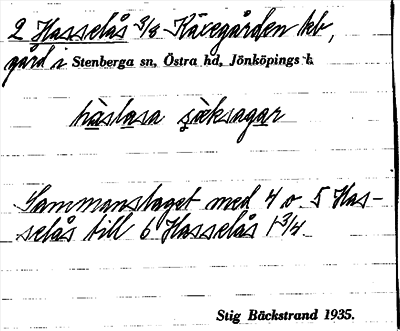 2 Hasselås 3/8 Kävegården kb,
gård i Stenberga sn, Östra hd, Jönköpings l.
hàslasa sæksagar
Sammanslaget med 4 o. 5 Has-
selås till 6 Hasselås 1 3/4
Stig Bäckstrand 1935.